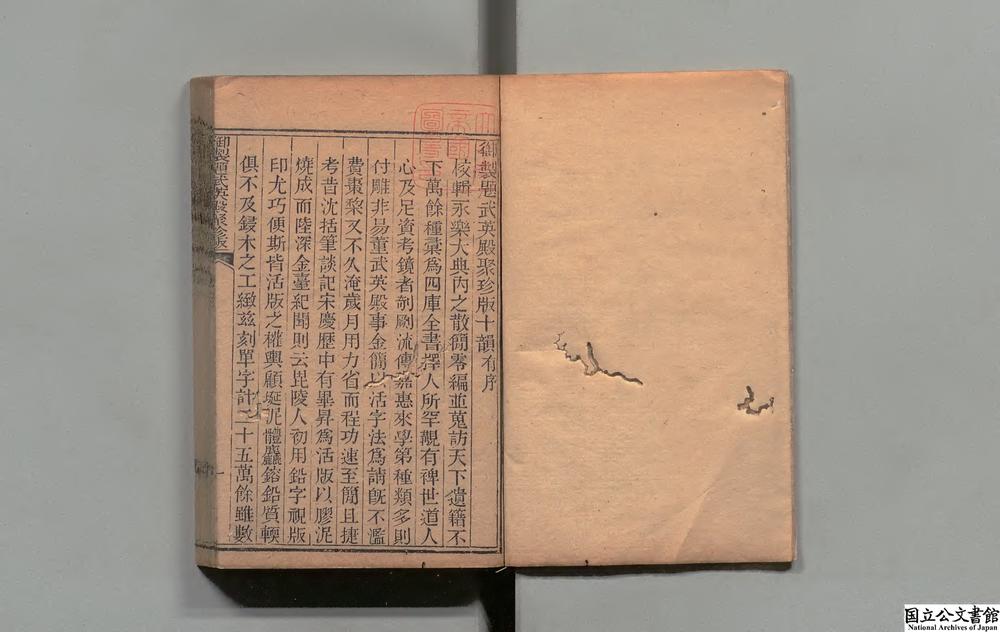 御製題武英殿聚珍版十韻有序
校輯永樂大典內之散簡零編並蒐訪天下遺籍不
下萬餘種彙爲四庫全書擇人所罕覯有裨世道人
心及足資考鏡者剞劂流傳嘉惠來學第種類多則
付雕非易董武英殿事金簡以活字法爲請旣不濫
費棗棃又不久淹歲月用力省而程功速至簡且捷
考昔沈括筆談記宋慶歷中有畢昇爲活版以膠泥
燒成而陸深金臺紀聞則云毘陵人初用鉛字視版
印尤巧便斯皆活版之權輿顧埏泥體麤鎔鉛質輭
俱不及鋟木之工緻兹刻單字計二十五萬餘雖數
御製題武英殿聚珍版
国立公文書館
National Archives of Japan